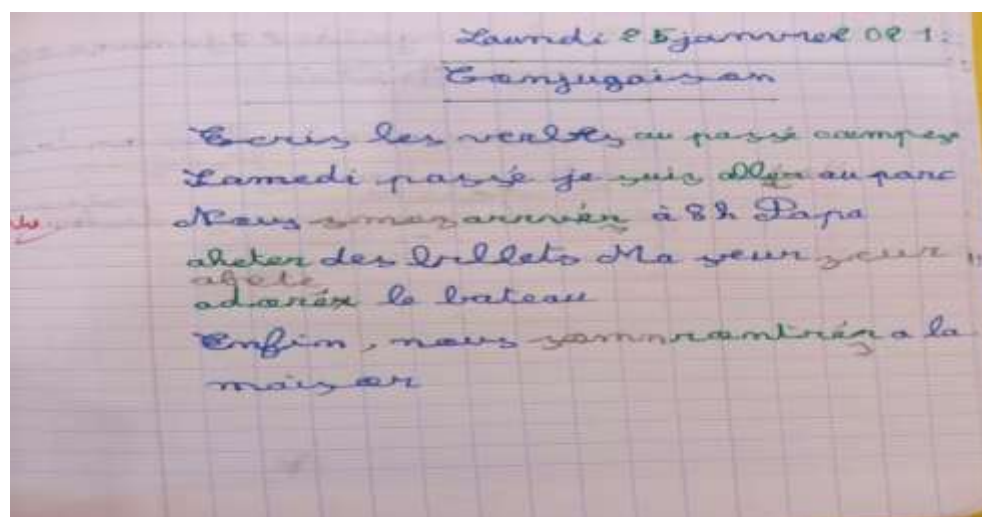 Laundi 25 janvrel 02 1:
Conjugaison
Ecris les verbes au passé compes
Samedi passé je suis Allér au parc
Nous somes arrivér à 8h Papa
aheter des billets Ma seur seur
ahete
adorér le bateau
Enfin, nous somnrentrér a la
maison